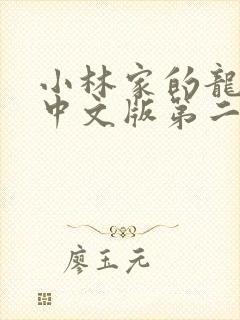 小林家的龍
中文版第二
廖玉元